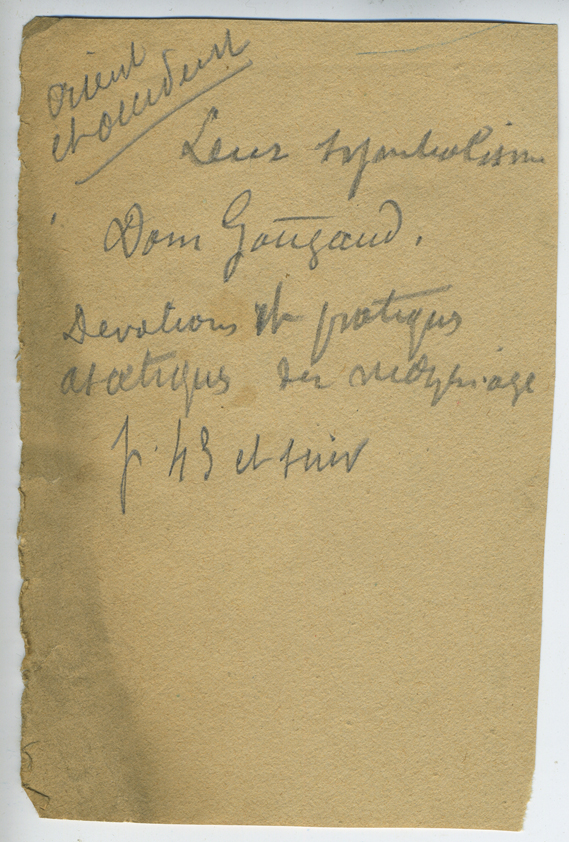 Orient
et occident
Leur symbolisme
Dom Gougaud.
Devotions et pratiques
ascetiques du moyen age
p. 43 et suiv